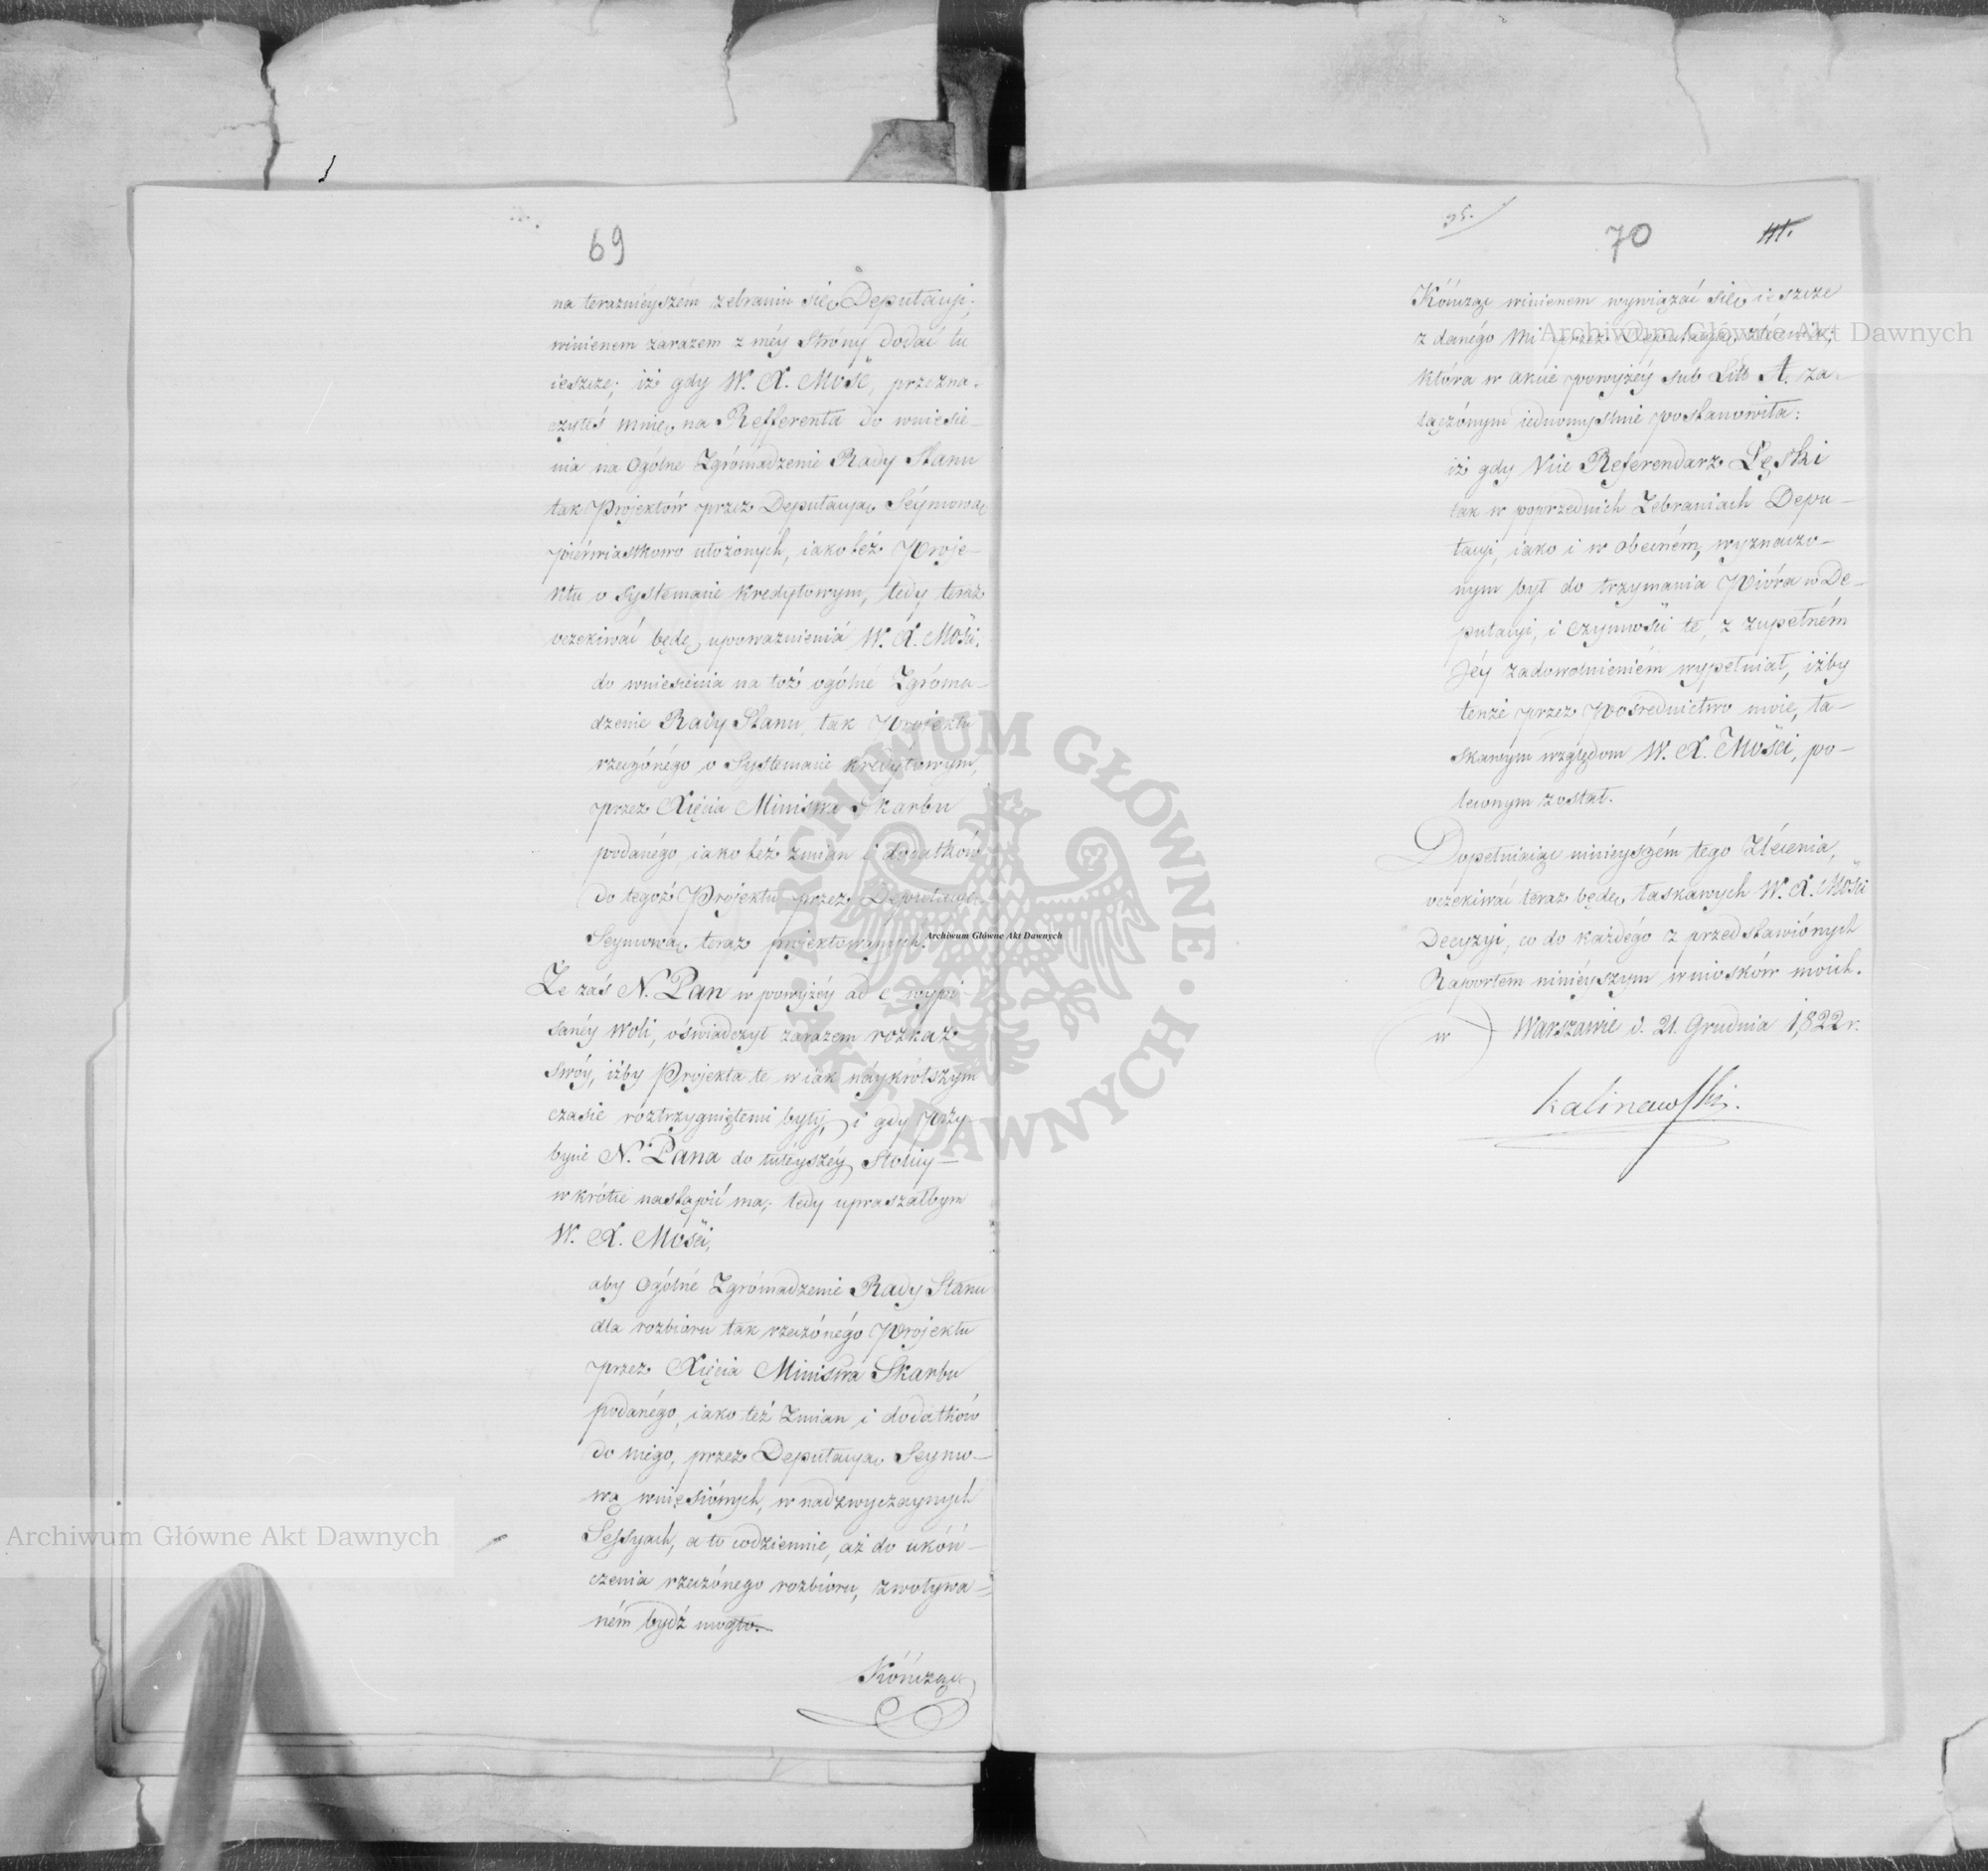 69
na teraznieyszém zebraniu się Deputacyi;
winienem zarazem z méy Stróny dodać tu
ieszcze; iż gdy W. X. Mość, przezna-
czyłeś mnię na Refferenta do wniesie-
nia na Ogólne Zgrómadzenie Rady Stanu
tak Projektów przez Deputacyą Séymową
pierwiastkowo ułożonych, iako też Proje-
ktu o Systemacie Kredytowym, tedy teraz
oczekiwać będę upoważnienia W. X. Mości.
do wniesienia na toż ogólné Zgróma-
dzenie Rady Stanu, tak Projektu
rzeczónégo o Systemacie kredytowym,
przez Xięcia Ministra Skarbu
podanégo iako też zmian i dodatków
do tegoż Projektu przez Deputacyą
Seymową teraz projektowanych.
Że zaś N. Pan w powyżéy ad C wypi-
sanéy Woli, oświadczył zarazem rozkaz
swóy, iżby Projekta te w iak náykrótszym
czasie roztrzygniętemi były, i gdy Przy-
bycie N. Pana do tuteyszéy Stolicy—
wkrótce nastąpić ma; tedy upraszałbym
W. X. Mości,
aby Ogólné Zgrómadzenie Rady Stanu
dla rozbioru tak rzeczónégo Projektu
przez Xięcia Ministra Skarbu
podanégo, iako też Zmian i dodatków
do niégo, przez Deputacyą Seymo-
wą wniesiónych, w nadzwyczaynych
Sessyach, a to codziennie, aż do ukóń-
czenia rzeczónego rozbioru, zwoływa-
ném bydź mogło.
Kóńcząc
70
Kóńcząc winienem wywiązać się ieszcze
z danégo Mi przez Deputacyą zlécenia;
która w akcie powyżéy sub Litt A. za-
łączónym iednomyślnie postanowiła:
iż gdy Vice Referendarz Łęski
tak w poprzednich Zebraniach Depu-
tacyi, iako i w obecném, wyznaczo-
nym był do trzymania Pióra w De-
putacyi, i czynności te, z zupełném
Jéy zadowolnieniém wypełniał, iżby
tenże przez Pośrednictwo moie, ła-
skawym względom W. X. Mości, po-
leconym został.
Dopełniaiąc ninieyszém tego Zlécenia,
oczekiwać teraz będę łaskawych W. X. Mości
Decyzyi, co do każdégo z przedstawiónych
Raportem niniéyszym wniosków moich.
w Warszawie d. 21. Grudnia 1822 r.
Kalinowski.
Archiwum Główne Akt Dawnych
Archiwum Główne Akt Dawnych
Archiwum Główne Akt Dawnych
ARCHIWUM GŁÓWNE · AKT DAWNYCH ·